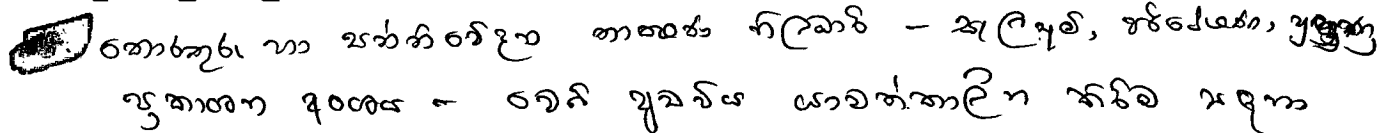 තොරතුරු හා සන්නිවේදන තාක්ෂණ නිලධාරී - සැලසුම්, පර්යේෂණ,
ප්‍රකාශන අංශය - වෙබ් අඩවිය යාවත්කාලීන කිරීම සඳහා